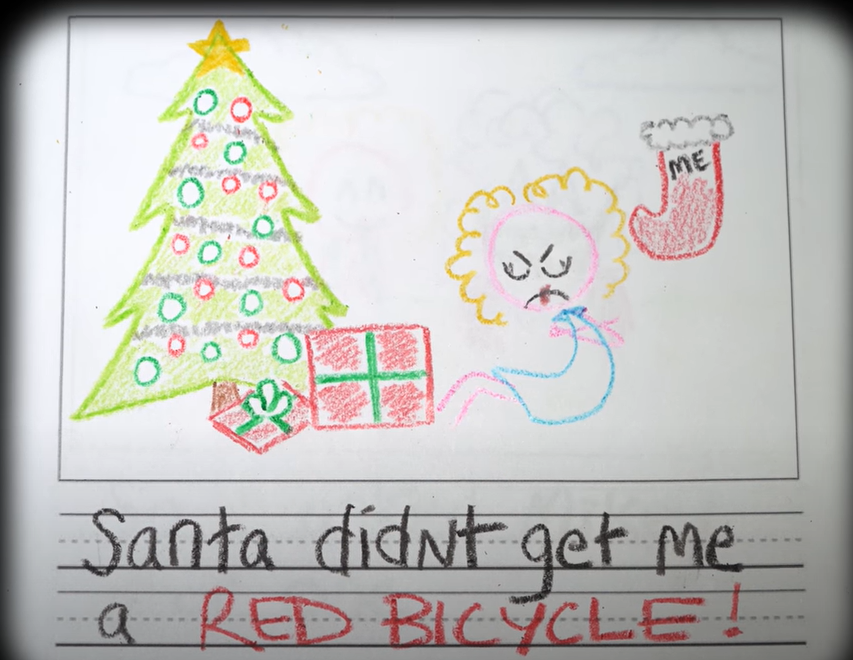 ME
Santa didNt get me
a RED BICYCLE!